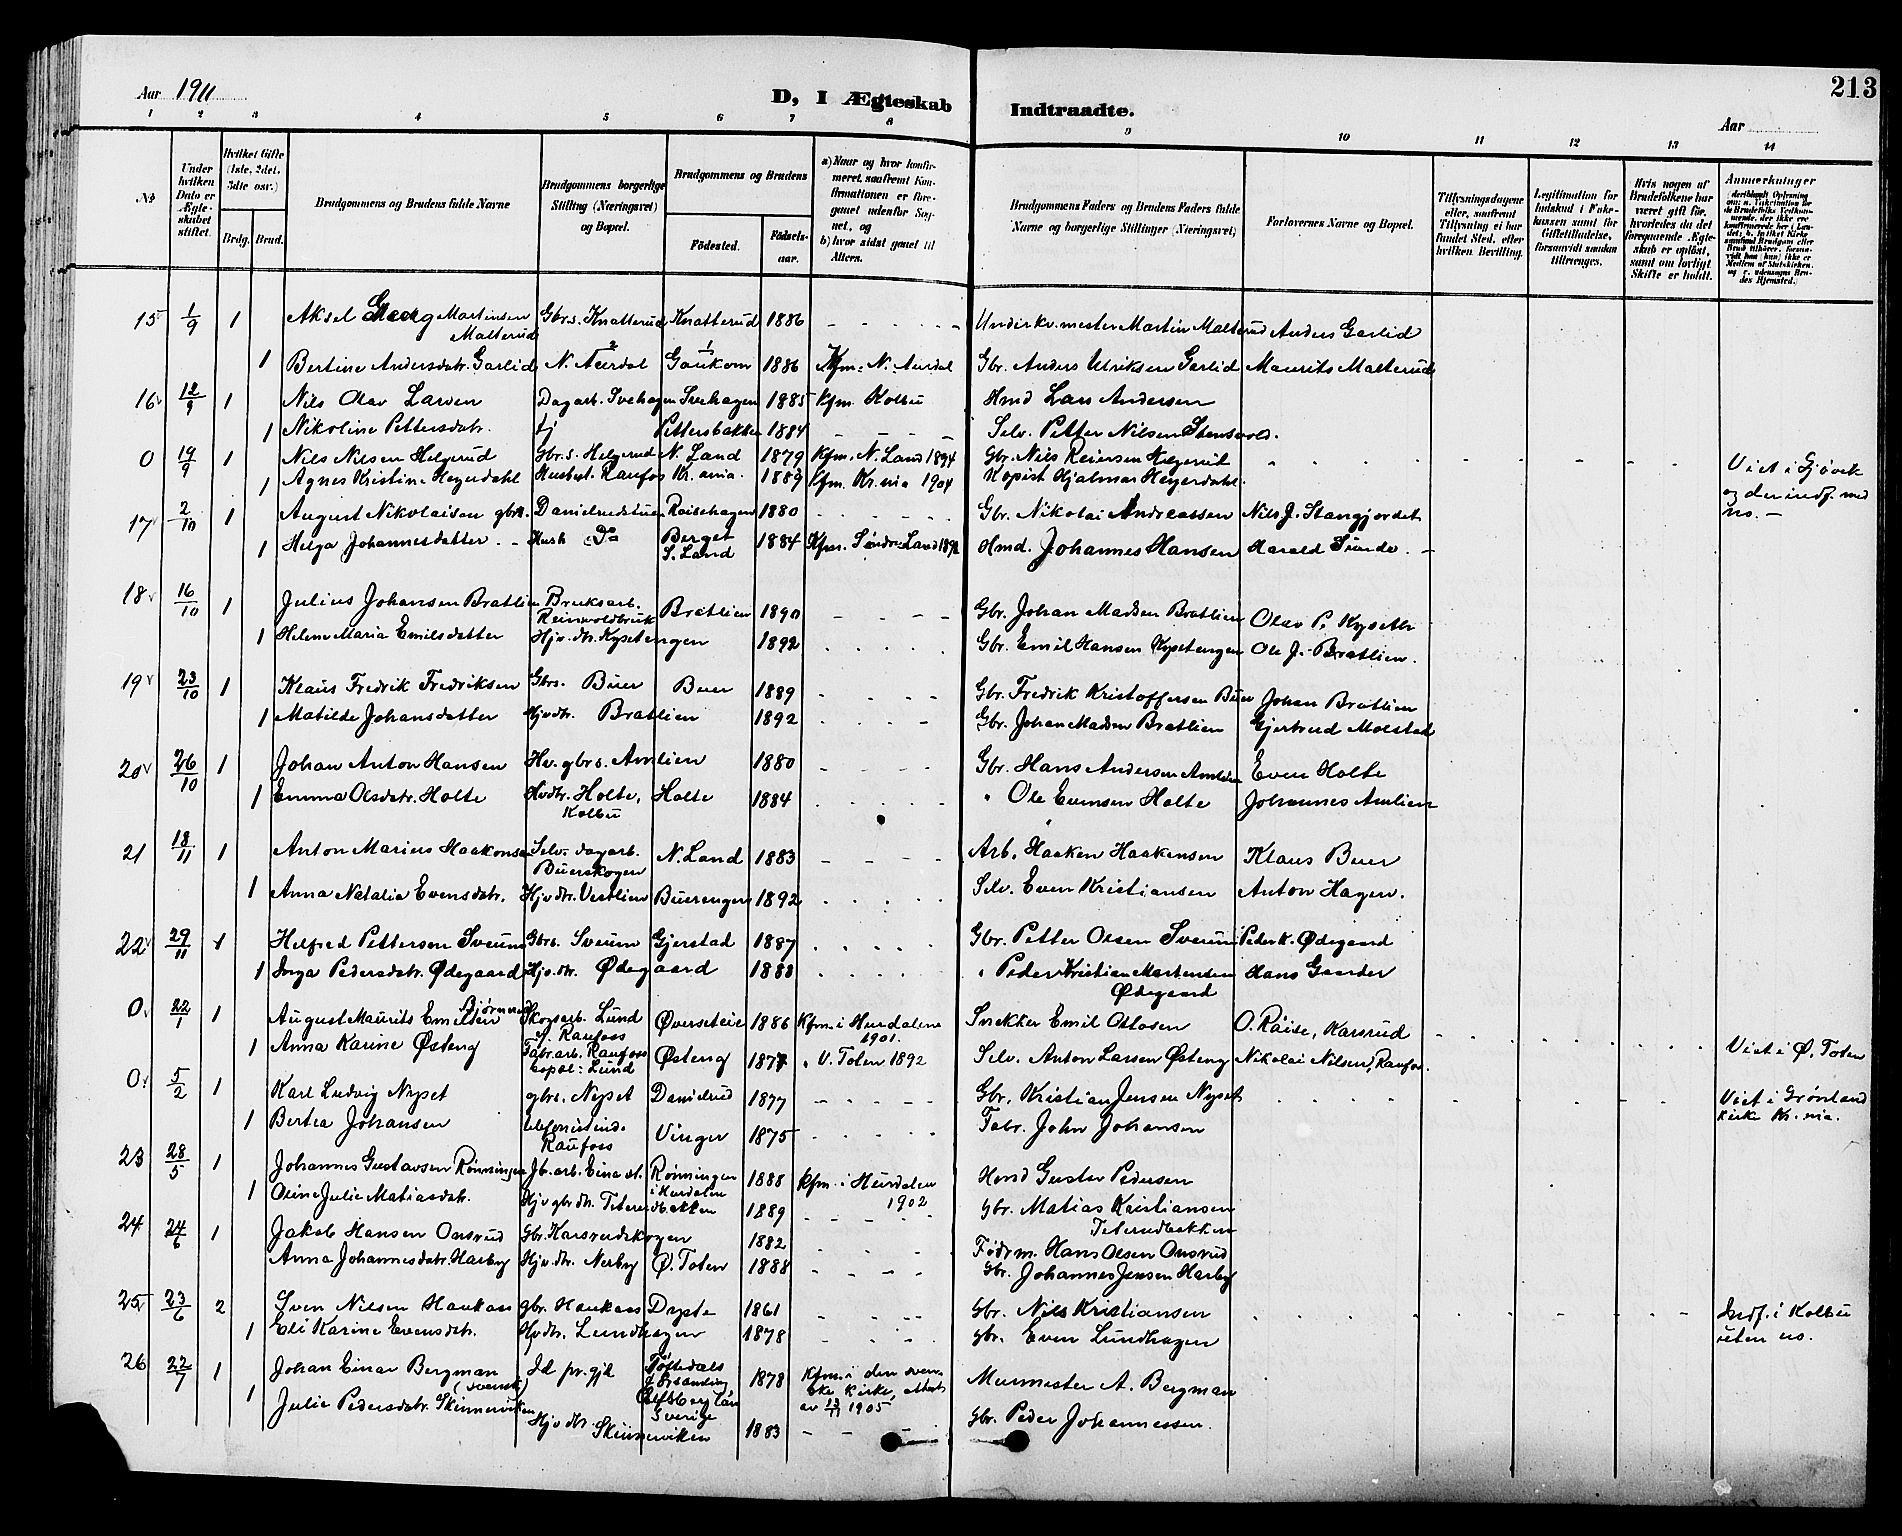 213
Aar 1911
D, I Ægteskab Indtraadte.
Aar
1 2 3 4 5 6 7 8 9 10 11 12 13 14
No
Under hvilken Dato er Ægteskabet stiftet.
Hvilket Gifte (1ste, 2det, 3die osv.)
Brdg. Brud.
Brudgommens og Brudens fulde Navne
Brudgommens borgerlige Stilling (Næringsvei) og Bopæl.
Brudgommens og Brudens
Fødested. Fødselsaar.
a) Naar og hvor konfirmeret, saafremt Konfirmationen er foregaaet udenfor Sognet, og
b) hvor sidst gaaet til Alters.
Brudgommens Faders og Brudens Faders fulde Navne og borgerlige Stillinger (Næringsvei)
Forlovernes Navne og Bopæl.
Tillysningsdagene eller, saafremt Tillysning ei har fundet Sted, efter hvilken Bevilling.
Legitimation for Indskud i Enkekassen samt for Giftetilladelse, forsaavidt saadan tiltrænges.
Hvis nogen af Brudefolkene har været gift før, hvorledes da det foregaaende Ægteskab er opløst, samt om lovligt Skifte er holdt.
Anmærkninger
15 1/9 1 Aksel Georg Martinsen Malterud Gbrs. Knatterud Knatterud 1886 Underkv.mester Martin Malterud Anders Garlid
1 Bertine Andersdatr. Garlid N. Aurdal Gaukom 1886 Kfm. N. Aurdal Gbr. Anders Ulriksen Garlid Maurits Malterud
16 12/9 1 Nils Olav Larsen Dagarb. Ivehagen Ivehagen 1885 Kfm. Kolbu Hmd Lars Andersen
1 Nikoline Pettersdatr. tj Pettersbakken 1884 Selv. Petter Nilsen Stensvold.
0 19/9 1 Nils Nilsen Helgerud Gbr.s. Helgerud N. Land 1879 Kfm. N. Land 1894 Gbr. Nils Reiersen Helgerud Viet i Gjøvik
1 Agnes Kristine Heyerdahl Husbest. Raufos Kr.ania. 1889 Kfm. Kr.nia 1904 Kopist Hjalmar Heyerdahl. og der indf. med no. -
17 2/10 1 August Nikolaisen gbrs. Danielsedstuen Roisehagen 1880 Gbr. Nikolai Andreassen Nils J. Stangjordet
1 Helga Johannesdatter Hush Do Berget S. Land 1884 Kfm. Søndre Land Hmd. Johannes Hansen Harald Sunde.
18 16/10 1 Julius Johansen Bratlien Bruksarb. Reinsvoldbruk Bratlien 1890 Gbr. Johan Madsen Bratlien Olav P. Kyseth
1 Helene Maria Emilsdatter Hjv.dtr. Kysetengen 1892 Gbr. Emil Hansen Kysetengen Ole J. Bratlien.
19 23/10 1 Klaus Fredrik Fredriksen Gbrs. Buer Buer 1889 Gbr. Fredrik Kristoffersen Buer Johan Bratlien
1 Matilde Johansdatter Hjvdtr. Bratlien 1892 Gbr. Johan Madsen Bratlien Gjertrud Molstad
20 26/10 1 Johan Anton Hansen Hv. gbrs. Amlien 1880 Gbr. Hans Andersen Amlien Even Holte
1 Emma Olsdatr. Holte Hvdtr. Holte, Kolbu Holte 1884 " Ole Evensen Holte Johannes Amlien
21 18/11 1 Anton Marius Haakonsen Selv. dagarb. Buerskogen N. Land 1883 Arb. Haaken Haakensen Klaus Buer
1 Anna Natalia Evensdatr. Hjvdtr. Vestlien Buerengen 1892 Selv. Even Kristiansen Anton Hagen.
22 29/11 1 Helfred Pettersen Sveum Gbrs. Sveum Gjerstad 1887 Gbr. Petter Olsen Sveum Peder K. Ødegaard
1 Inga Pedersdatr. Ødegaard Hjv.dtr. Ødegaard 1888 " Peder Kristian Martensen Ødegaard Hans Gaarder
0 22/1 1 August Maurits Emilsen Bjørnerud Skogsarb. Lund p. Raufoss Øversteie 1886 Kfm. i Hurdalen 1901. Snekker Emil Ottosen O. Røise, Karsrud
1 Anna Karine Østeng Fabr.arb. Raufoss bopæl: Lund Østeng 1877 " V. Toten 1892 Selv. Anton Larsen Østeng Nikolai Nilsen, Raufos. Viet i Ø. Toten
0 5/2 1 Karl Ludvig Nyset gbrs. Nyset Danielsrud 1877 Gbr. Kristian Jensen Nyset Viet i Grønland kirke Kr.nia.
1 Bertea Johansen telefonistinde Raufoss Vinger 1875 Fabr. John Johansen
23 28/5 1 Johannes Gustavsen Rønningen Jb.arb. Eina st. Rønningen i Hurdalen 1888 Kfm. i Hurdalen 1902 Hmd Gustav Pedersen
1 Oline Julie Matiasdatr. Hjv gbrdtr. Teterudbakken 1889 Gbr. Matias Kristiansen Teterudbakken
24 24/6 1 Jakob Hansen Onsrud Gbr. Karsrudskogen 1882 Fødrm. Hans Olsen Onsrud
Anna Johannesdatr. Harby Hjv.dtr. Nerby Ø. Toten 1888 Gbr. Johannes Jensen Harby
25 23/6 2 Sven Nilsen Haukaas gbr. Haukaas Dyste 1861 Gbr. Nils Kristiansen Indf. i Kolbu uten no.
1 Eli Karine Evensdatr. Hvdtr. Lundhagen 1878 Gbr. Even Lundhagen
26 22/7 1 Johan Einar Bergman (svensk) Id pr. gjh Töftedals församling Elfsborg län Sverige 1878 Kfm. i den svenske kirke, attest av 13/11 1905 Murmester A. Bergman
1 Julie Pedersdatr. Skinnerviken Hjv dtr. Skinnerviken 1883 Gbr. Peder Johannessen.